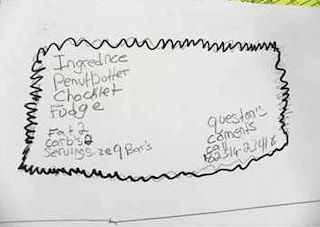 Ingrednce
Penutbutter
Chocklet
Fudge
Fat 2
carbs 2
Servings.ze 9 Bar's
queston's
coments
call